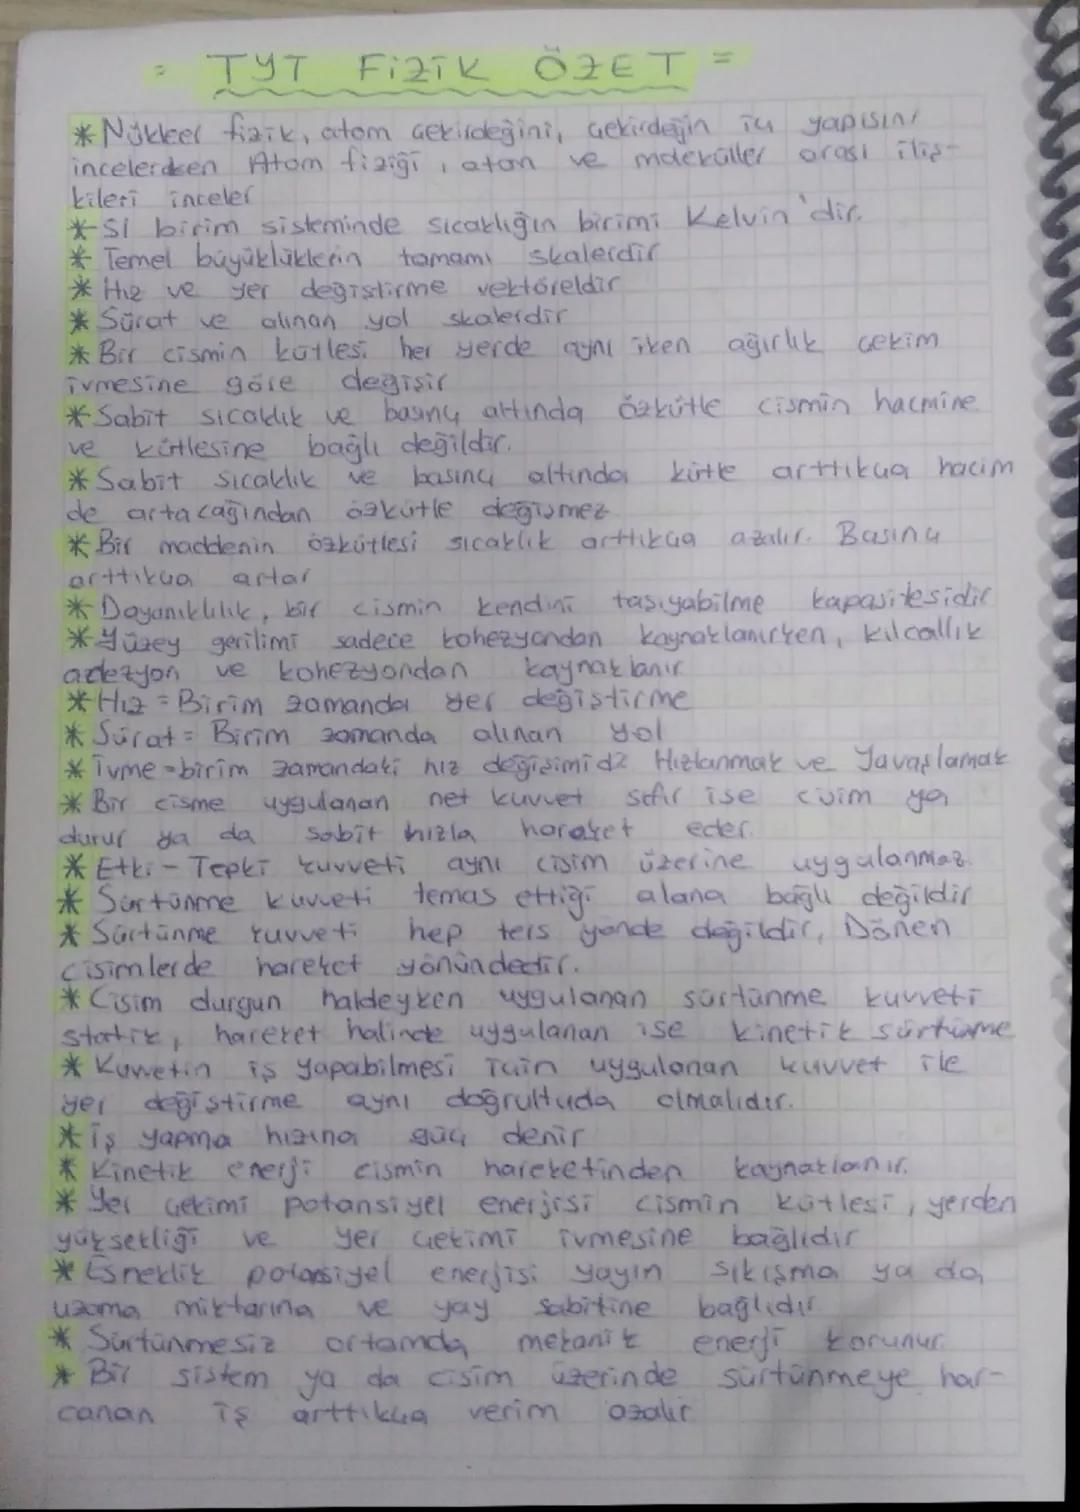 = TYT FİZİK ÖZET =
* Nükleer fizik, atom çekirdeğini, çekirdeğin iç yapısını
incelerken Atom fiziği, atom ve moleküller arası iliş-
kileri inceler
* SI birim sisteminde sıcaklığın birimi Kelvin'dir.
* Temel büyüklüklerin tamamı skalerdir
* Hız ve yer değiştirme vektöreldir
* Sürat ve alınan yol skalerdir
* Bir cismin kütlesi her yerde aynı iken ağırlık çekim
ivmesine göre değişir
* Sabit sıcaklık ve basınç altında özkütle cismin hacmine
ve kütlesine bağlı değildir.
* Sabit sıcaklık ve basınç altında kütle arttıkça hacim
de artacağından özkütle değişmez
* Bir maddenin özkütlesi sıcaklık arttıkça azalır. Basınç
arttıkça artar
* Dayanıklılık, bir cismin kendini taşıyabilme kapasitesidir
* Yüzey gerilimi sadece kohezyondan kaynaklanırken, kılcallık
adezyon ve kohezyondan kaynaklanır
* Hız = Birim zamanda yer değiştirme
* Sürat = Birim zamanda alınan yol
* İvme = birim zamandaki hız değişimidz Hızlanmak ve Yavaşlamak
* Bir cisme uygulanan net kuvvet sıfır ise cisim ya
durur ya da sabit hızla hareket eder.
* Etki - Tepki kuvveti aynı cisim üzerine uygulanmaz.
* Sürtünme kuvveti temas ettiği alana bağlı değildir
* Sürtünme kuvveti hep ters yönde değildir, Dönen
cisimlerde hareket yönündedir.
* Cisim durgun haldeyken uygulanan sürtünme kuvveti
statik, hareket halinde uygulanan ise kinetik sürtünme
* Kuvvetin iş yapabilmesi için uygulanan kuvvet ile
yer değiştirme aynı doğrultuda olmalıdır.
* İş yapma hızına güç denir
* Kinetik enerji cismin hareketinden kaynaklanır.
* Yer çekimi potansiyel enerjisi cismin kütlesi, yerden
yüksekliği ve yer çekimi ivmesine bağlıdır
* Esneklik potansiyel enerjisi yayın sıkışma ya da
uzama miktarına ve yay sabitine bağlıdır
* Sürtünmesiz ortamda mekanik enerji korunur.
* Bir sistem ya da cisim üzerinde sürtünmeye har-
canan iş arttıkça verim azalır